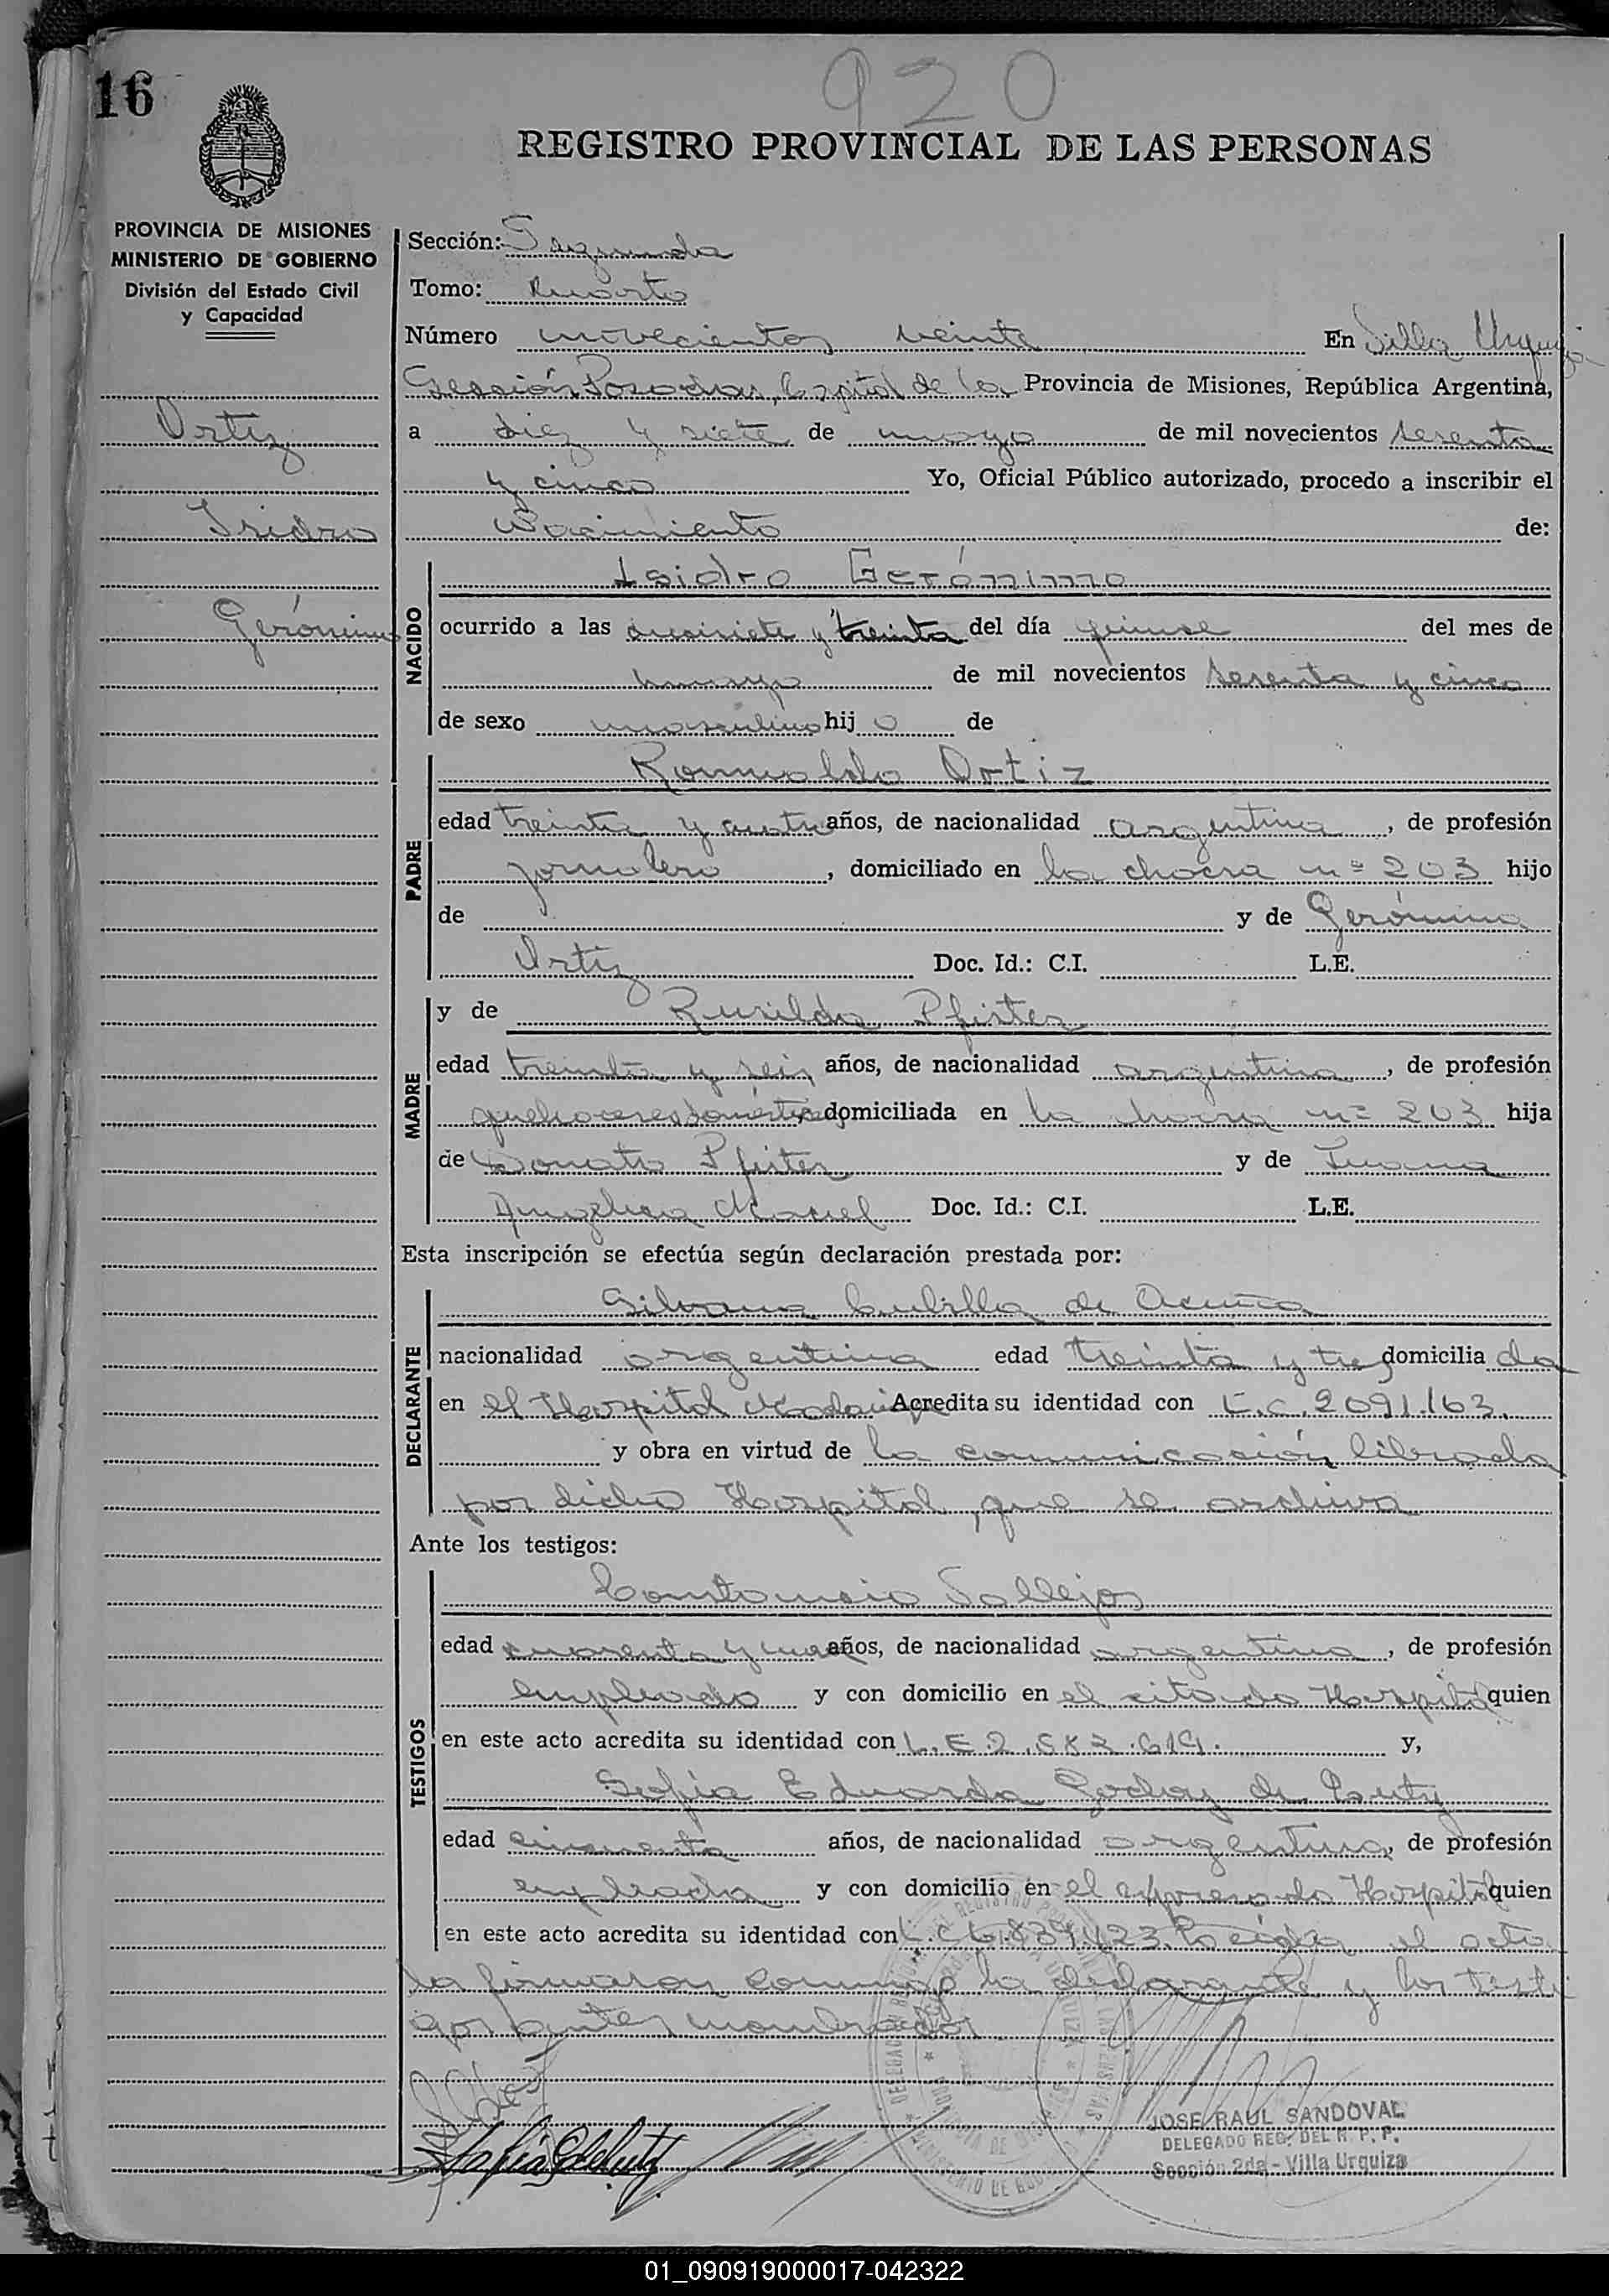 920
16
REGISTRO PROVINCIAL DE LAS PERSONAS
PROVINCIA DE MISIONES
MINISTERIO DE GOBIERNO
División del Estado Civil
y Capacidad
Ortiz
Isidro
Gerónimo
Sección: Segunda
Tomo: Cuarto
Número novecientos veinte En Villa Urquiza
Sección Posadas, Capital de la Provincia de Misiones, República Argentina,
a diez y siete de mayo de mil novecientos sesenta
y cinco Yo, Oficial Público autorizado, procedo a inscribir el
Nacimiento de:
NACIDO
Isidro Gerónimo
ocurrido a las diecisiete y treinta del día quince del mes de
mayo de mil novecientos sesenta y cinco
de sexo masculino hij o de
PADRE
Romualdo Ortiz
edad treinta y cuatro años, de nacionalidad argentina, de profesión
jornalero, domiciliado en la chacra nº 203 hijo
de y de Gerónima
Ortiz Doc. Id.: C.I. L.E.
MADRE
y de Rusilda Pfister
edad treinta y seis años, de nacionalidad argentina, de profesión
quehaceres domésticos domiciliada en la chacra nº 203 hija
de Donato Pfister y de Juana
Angélica Maciel Doc. Id.: C.I. L.E.
Esta inscripción se efectúa según declaración prestada por:
DECLARANTE
Silvana Cubilla de Acuña
nacionalidad argentina edad treinta y tres domicilia da
en el Hospital Madariaga Acredita su identidad con L.C. 2091.163.
y obra en virtud de la comunicación librada
por dicho Hospital, que se archiva
Ante los testigos:
TESTIGOS
Constancio Vallejos
edad cuarenta y nueve años, de nacionalidad argentina, de profesión
empleado y con domicilio en el citado Hospital quien
en este acto acredita su identidad con L.E. y,
Sofía Eduarda Godoy de
edad cincuenta años, de nacionalidad argentina, de profesión
empleada y con domicilio en el expresado Hospital quien
en este acto acredita su identidad con L.C. Leída el acta
la firmaron conmigo la declarante y los testi
gos antes nombrados
JOSE RAUL SANDOVAL
DELEGADO REG. DEL R. P. P.
Sección 2da - Villa Urquiza
01_090919000017-042322